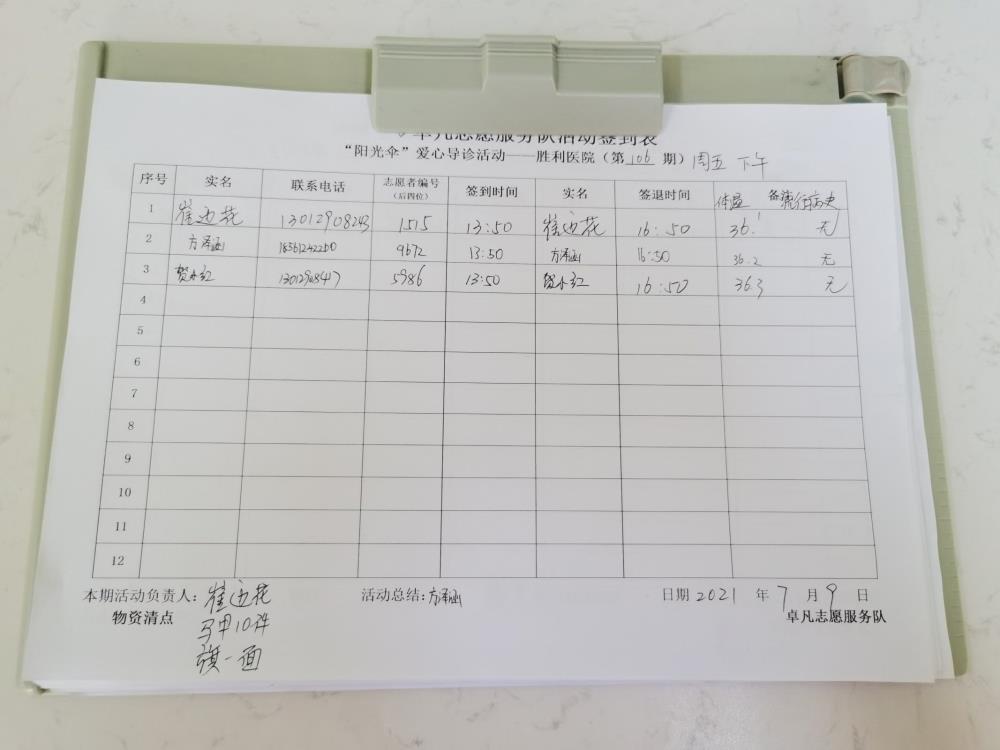 卓凡志愿服务队活动签到表
“阳光伞”爱心导诊活动——胜利医院（第106期）周五 下午
序号 实名 联系电话 志愿者编号（后四位） 签到时间 实名 签退时间 体温 备注 流行病史
1 崔迎花 13012908243 1515 13:50 崔迎花 16:50 36.1 无
2 方泽涵 18561242250 9672 13:50 方泽涵 16:50 36.2 无
3 贺小红 5986 13:50 贺小红 16:50 36.3 无
4
5
6
7
8
9
10
11
12
本期活动负责人：崔迎花 活动总结：方泽涵 日期 2021 年 7 月 9 日
物资清点 卓凡志愿服务队
马甲10件
旗一面